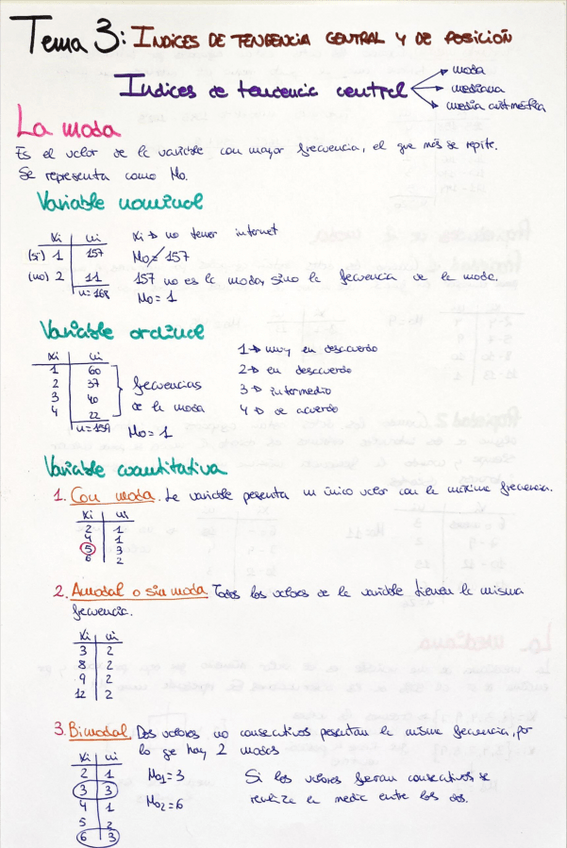 Tema 3: INDICES DE TENDENCIA CENTRAL Y DE POSICIÓN
Indices de tendencia central → moda
→ mediana
→ media aritmética
La moda
Es el valor de la variable con mayor frecuencia, el que más se repite.
Se representa como Mo.
Variable nominal
Xi | ni
(sí) 1 | 157
(no) 2 | 11
n=168
Xi → no tener internet
Mo≠157
157 no es la moda, sino la frecuencia de la moda.
Mo=1
Variable ordinal
Xi | ni
1 | 60
2 | 37
3 | 40
4 | 22
n=159
frecuencias
de la moda
Mo=1
1→ muy en desacuerdo
2→ en desacuerdo
3→ intermedio
4→ de acuerdo
Variable cuantitativa
1. Con moda. La variable presenta un único valor con la máxima frecuencia.
Xi | ni
2 | 1
4 | 1
5 | 3
6 | 2
2. Amodal o sin moda Todos los valores de la variable tienen la misma
frecuencia.
Xi | ni
3 | 2
8 | 2
9 | 2
12 | 2
3. Bimodal Dos valores no consecutivos presentan la misma frecuencia, por
lo que hay 2 modas
Xi | ni
2 | 1
3 | 3
4 | 1
5 | 2
6 | 3
Mo1=3
Mo2=6
Si los valores fueran consecutivos se
realiza la media entre los dos.